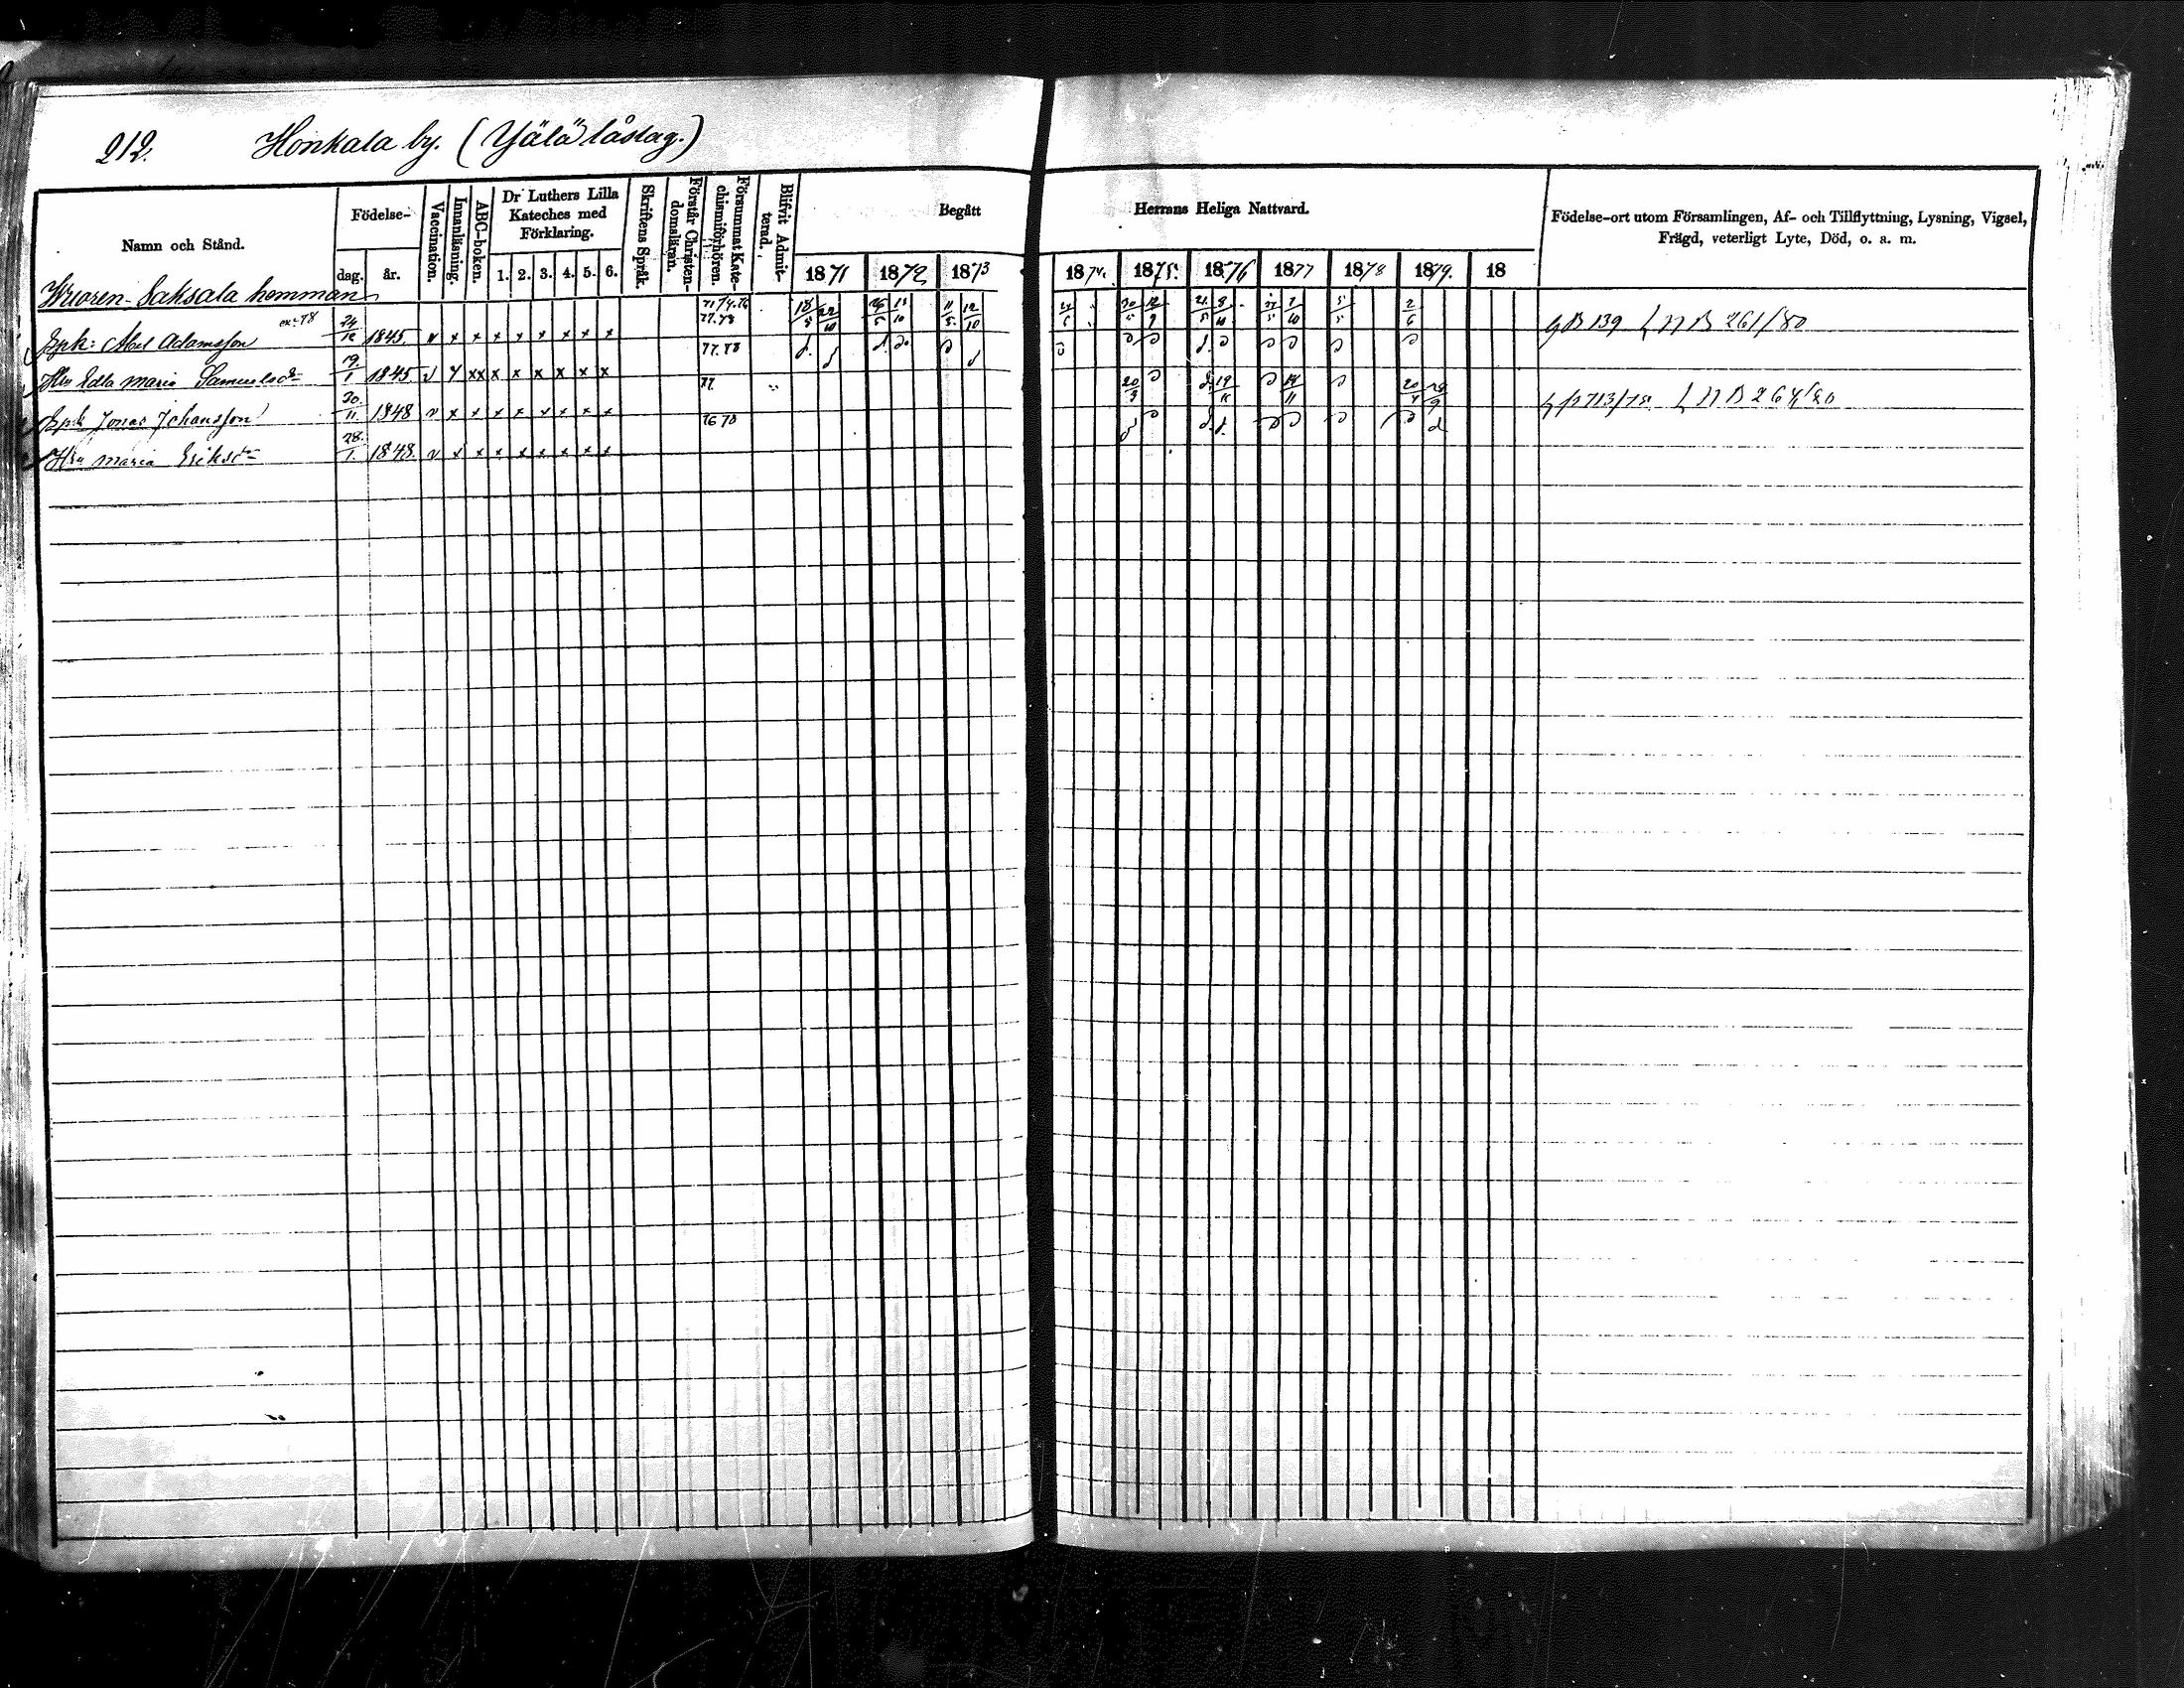 212. Honkala by. (Yälä låslag.)
Namn och Stånd.
Födelse-
dag. år.
Vaccination.
Innanläsning.
ABC-boken.
Dr Luthers Lilla Kateches med Förklaring.
1. 2. 3. 4. 5. 6.
Skriftens Språk.
Förstår Christen-domsläran.
Försummat Kate-chismiförhören.
Blifvit Admit-terad.
Begått Herrans Heliga Nattvard.
1871 1872 1873 1874. 1875. 1876 1877 1878 1879. 18
Födelse-ort utom Församlingen, Af- och Tillflyttning, Lysning, Vigsel,
Frägd, veterligt Lyte, Död, o. a. m.
Saksala hemman
Abel Adamsson 24/12 1845. v x x x x x x x x 77.78 18/5 22/10 11/5 12/10 20/5 12/9 21/5 8/10 7/10 5/5 2/6 B 139 N B 261/80
Edla Maria Samuelsdr 19/1 1845. x x x x x x 77.78
Jonas Johansson 20/11 1848 v x x x x x x x x 77. 20/3 19/11 14/11 20/4 713/75 N B 264/80
Maria Eriksdr 28/1 1848. v x x x x x x x 76 78